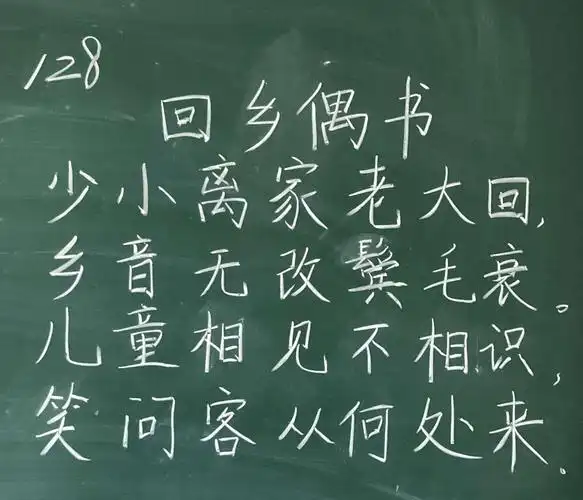 128
回乡偶书
少小离家老大回,
乡音无改鬓毛衰。
儿童相见不相识,
笑问客从何处来.